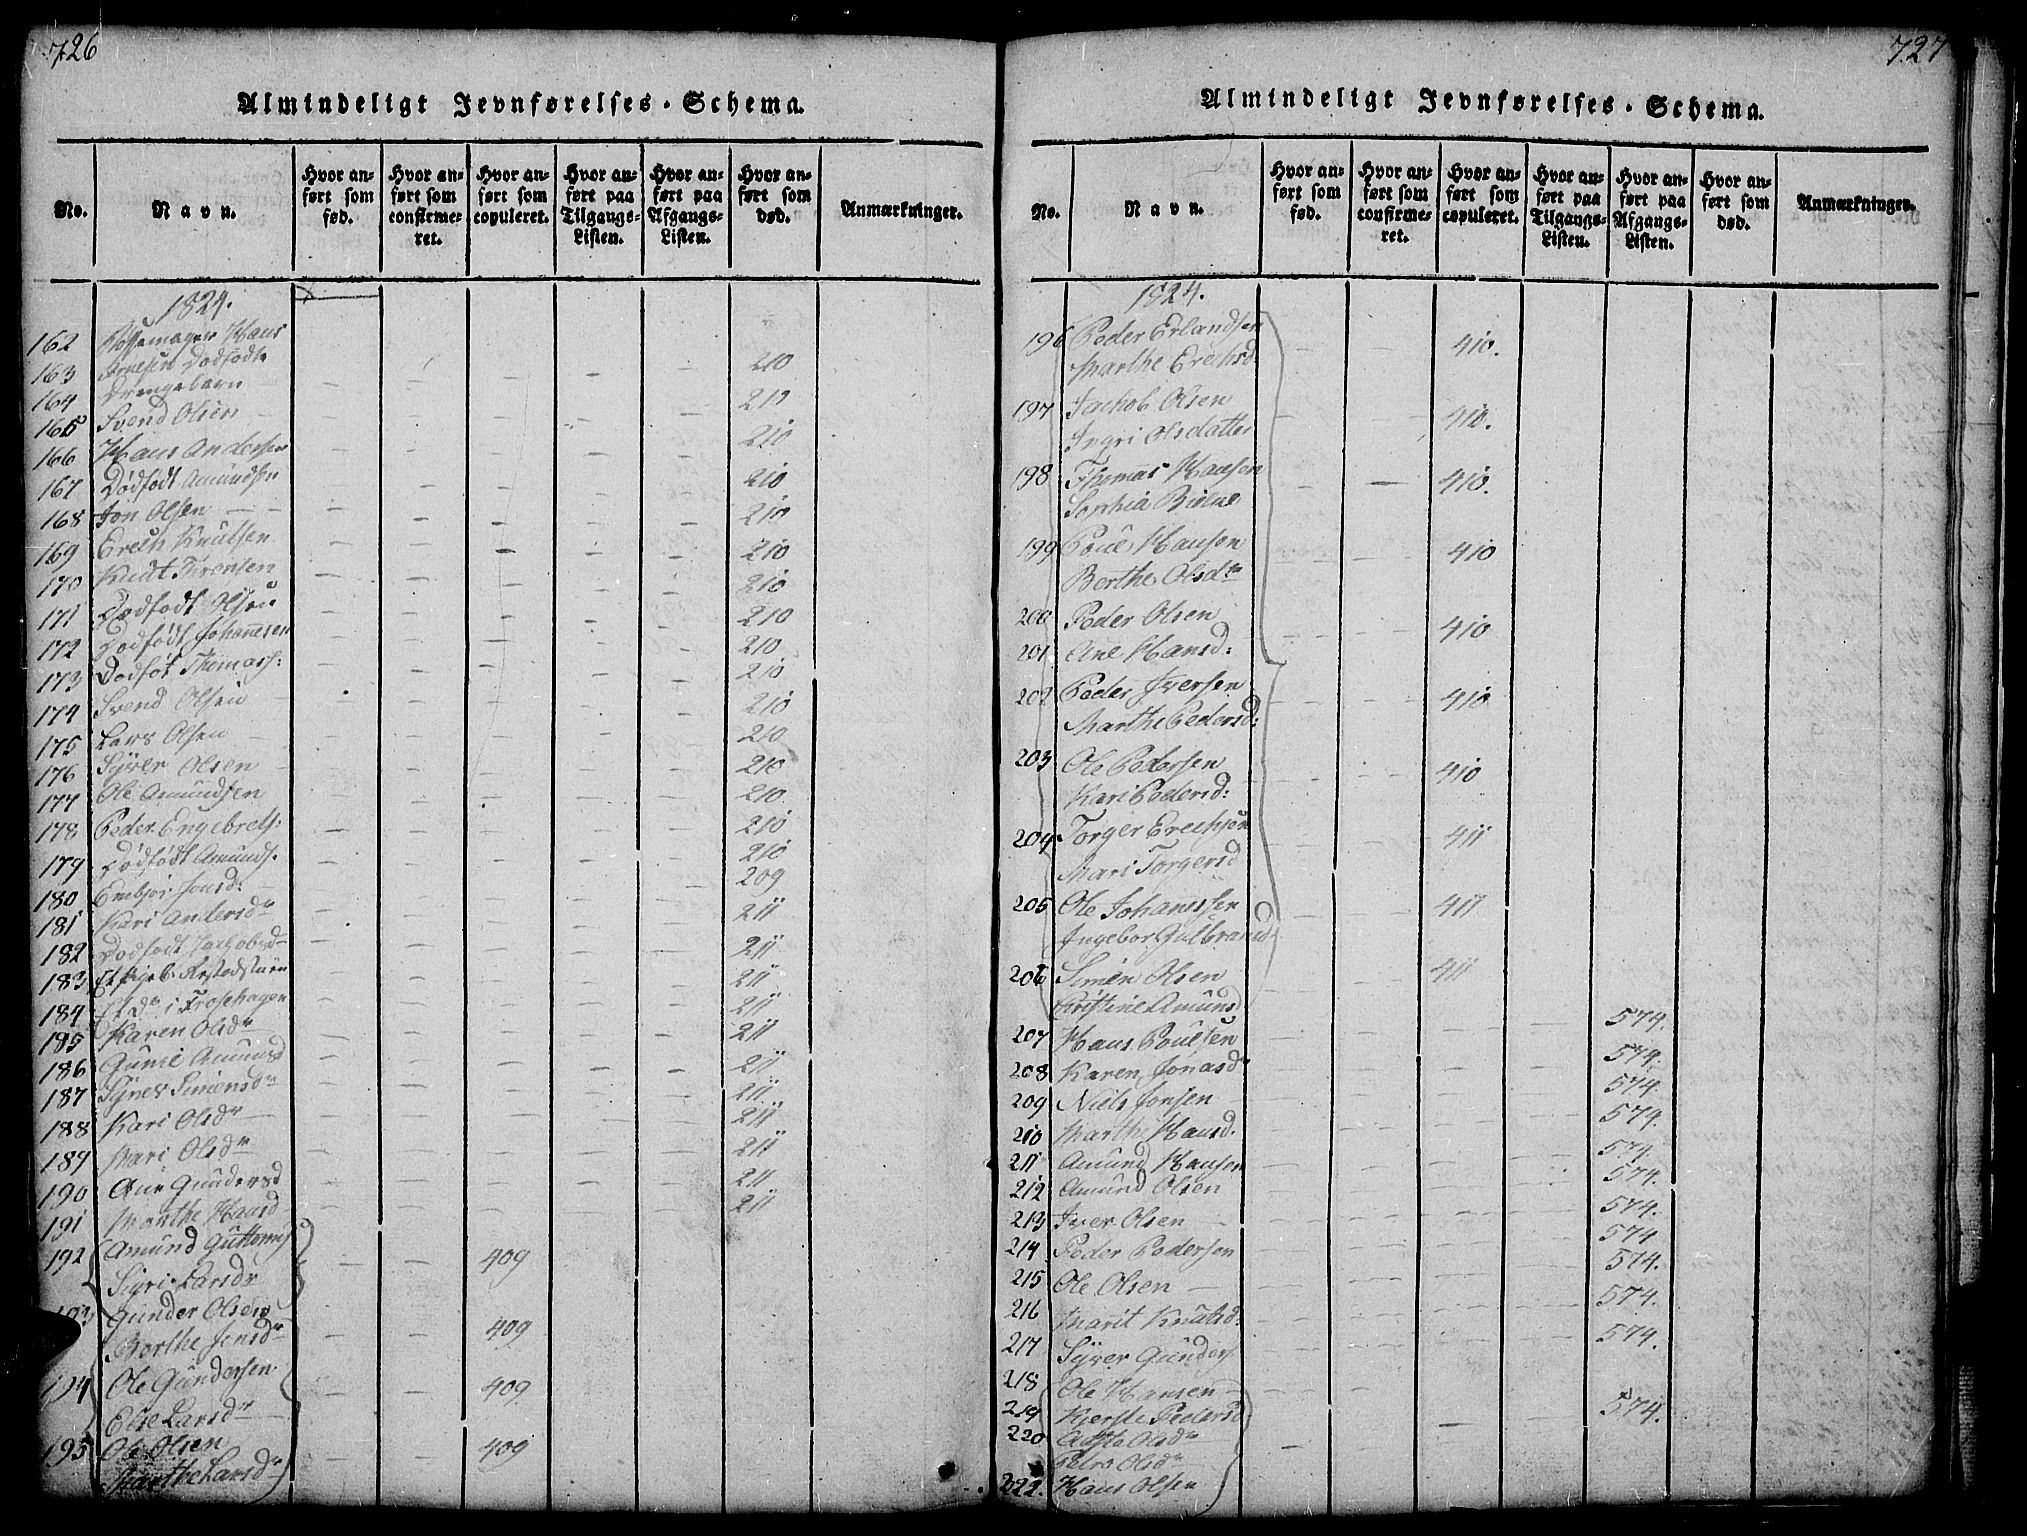 726
Almindeligt Jevnførelses-Schema.
No.
Navn.
Hvor an-
ført som
fød.
Hvor an-
ført som
confirme-
ret.
Hvor an-
ført som
copuleret.
Hvor an-
ført paa
Tilgangs-
Listen.
Hvor an-
ført paa
Afgangs-
Listen.
Hvor an-
ført som
død.
Anmærkninger.
1824.
162 Hans
163 Dødfødte 210
164 Drengebarn 212
165 Svend Olsen 210
166 Hans Andersen
167 Dødfødt Amundsen 210
168 Jon Olsen 210
169 Erech Knutsen 210
170 Knut 210
171 Dødfødt Olsen 210
172 Dødfødt Johannesen 210
173 Dødføt Thomass: 210
174 Svend Olsen 210
175 Lars Olsen 210
176 Syver Olsen 210
177 Ole Amundsen 210
178 Peder Engebrets: 210
179 Dødfødt Amunds. 210
180 Embjør Jonsd: 209
181 Kari Andersdr 211
182 Dødfødt Jachobsd 211
183 211
184 i Frosehagen 211
185 Karen Olsdr 211
186 Amunsd 211
187 Simensdr 211
188 Kari Olsdr 211
189 Mari Olsdr 211
190 Ane Gundersd 211
191 Marthe Haasd 211
192 Amund Guttorms
Sigri Larsdr 409
193 Gunder Olsen
Berthe Jensdr 409
194 Ole Gundersen
Else Larsdr 409
195 Ole Olsen
Marthe Larsdr 409
727
Almindeligt Jevnførelses-Schema.
No.
Navn.
Hvor an-
ført som
fød.
Hvor an-
ført som
confirme-
ret.
Hvor an-
ført som
copuleret.
Hvor an-
ført paa
Tilgangs-
Listen.
Hvor an-
ført paa
Afgangs-
Listen.
Hvor an-
ført som
død.
Anmærkninger.
1824.
196 Peder Erlandsen
Marthe Erechsd 410.
197 Jachob Olsen
Ingri Olsdatter 410.
198 Thomas Hansen
Sophia 410.
199 Poul Hansen
Berthe Olsdtr 410
200 Peder Olsen
201 Ane Hansd: 410
202 Peder Iversen
Marthe Pedersd: 410
203 Ole Pedersen
Kari Pedersd: 410
204 Torger Erechsen
Mari Torgersd 411
205 Ole Johannessen
Ingebor Gulbransd 411
206 Simen Olsen
Christine Amunsd 411
207 Hans Poulsen 574.
208 Karen Jonasdr 574.
209 Niels Jonsen 574.
210 Marthe Hansd. 574.
211 Amund Hansen 574.
212 Amund Olsen 574.
213 Iver Olsen 574.
214 Peder Pedersen 574
215 Ole Olsen 574.
216 Marit Knutsd: 574.
217 Syver Gunders 574.
218 Ole Hansen
219 Kjerste Pedersd 574.
220 Olsdr
Olsdr
222. Hans Olsen